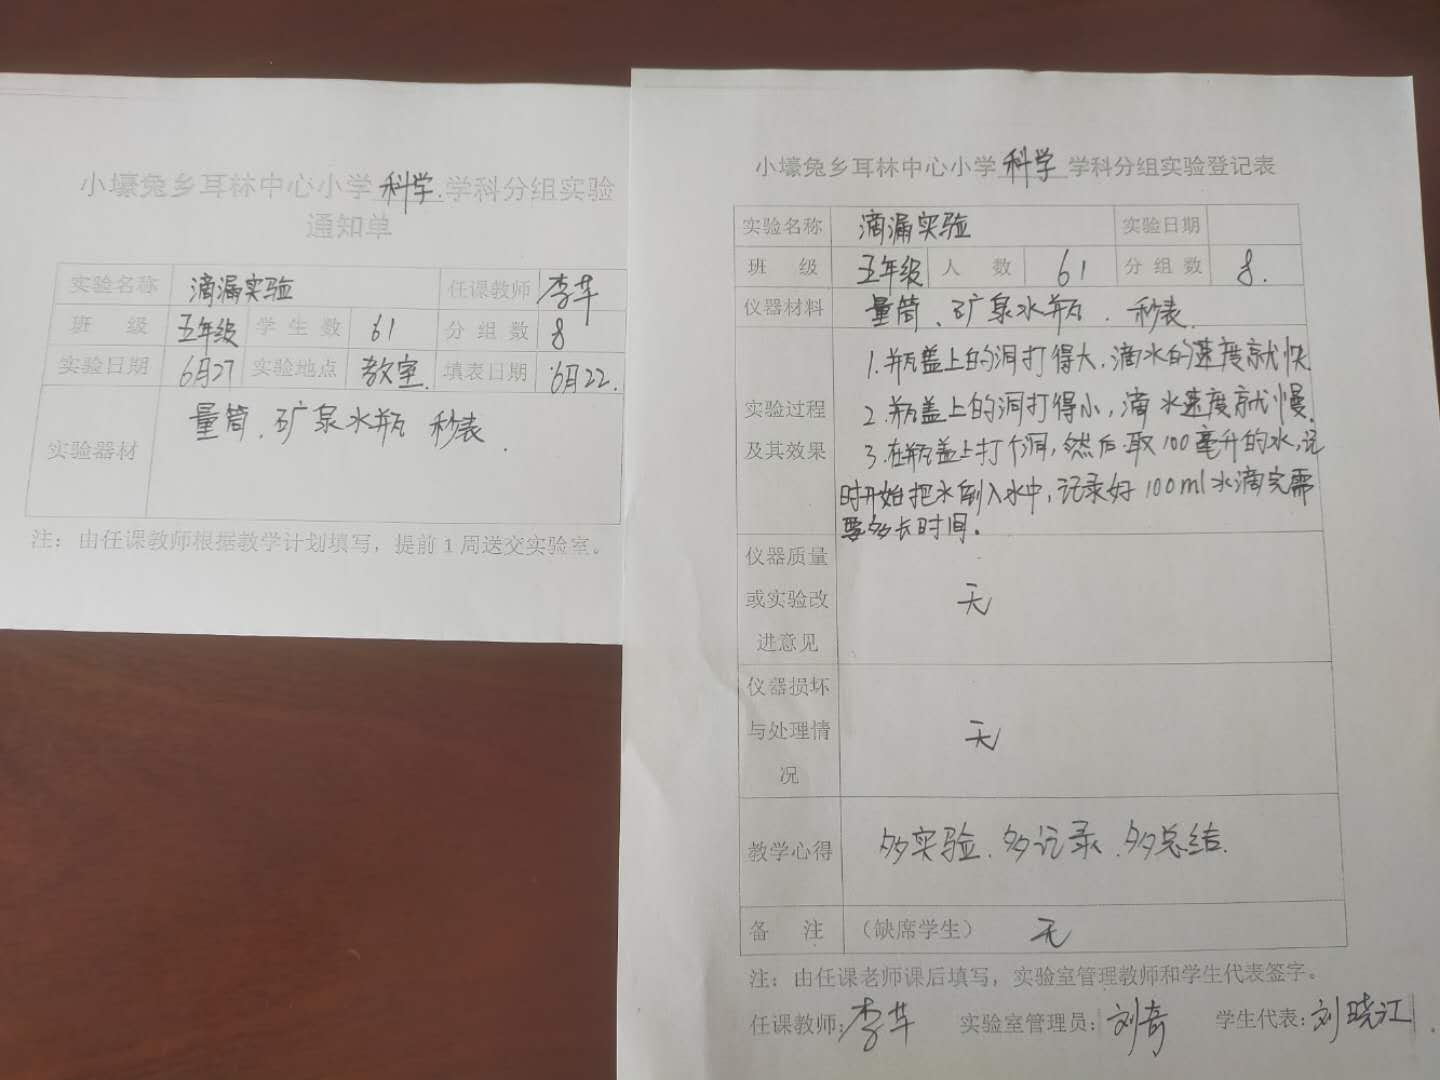 小壕兔乡耳林中心小学 科学 学科分组实验
通知单
实验名称 滴漏实验 任课教师 李苹
班 级 五年级 学生数 61 分组数 8
实验日期 6月27 实验地点 教室. 填表日期 6月22.
实验器材 量筒、矿泉水瓶 秒表.
注：由任课教师根据教学计划填写，提前1周送交实验室。
小壕兔乡耳林中心小学 科学 学科分组实验登记表
实验名称 滴漏实验 实验日期
班 级 五年级 人 数 61 分组数 8.
仪器材料 量筒、矿泉水瓶、秒表.
实验过程
及其效果
1.瓶盖上的洞打得大,滴水的速度就快
2.瓶盖上的洞打得小,滴水速度就慢.
3.在瓶盖上打个洞,然后取100毫升的水,记
时开始把水倒入水中,记录好100ml水滴完需
要多长时间。
仪器质量
或实验改
进意见
无
仪器损坏
与处理情
况
无
教学心得 多实验、多记录、多总结.
备 注 （缺席学生） 无
注：由任课老师课后填写，实验室管理教师和学生代表签字。
任课教师:李苹 实验室管理员:刘奇 学生代表:刘晓江